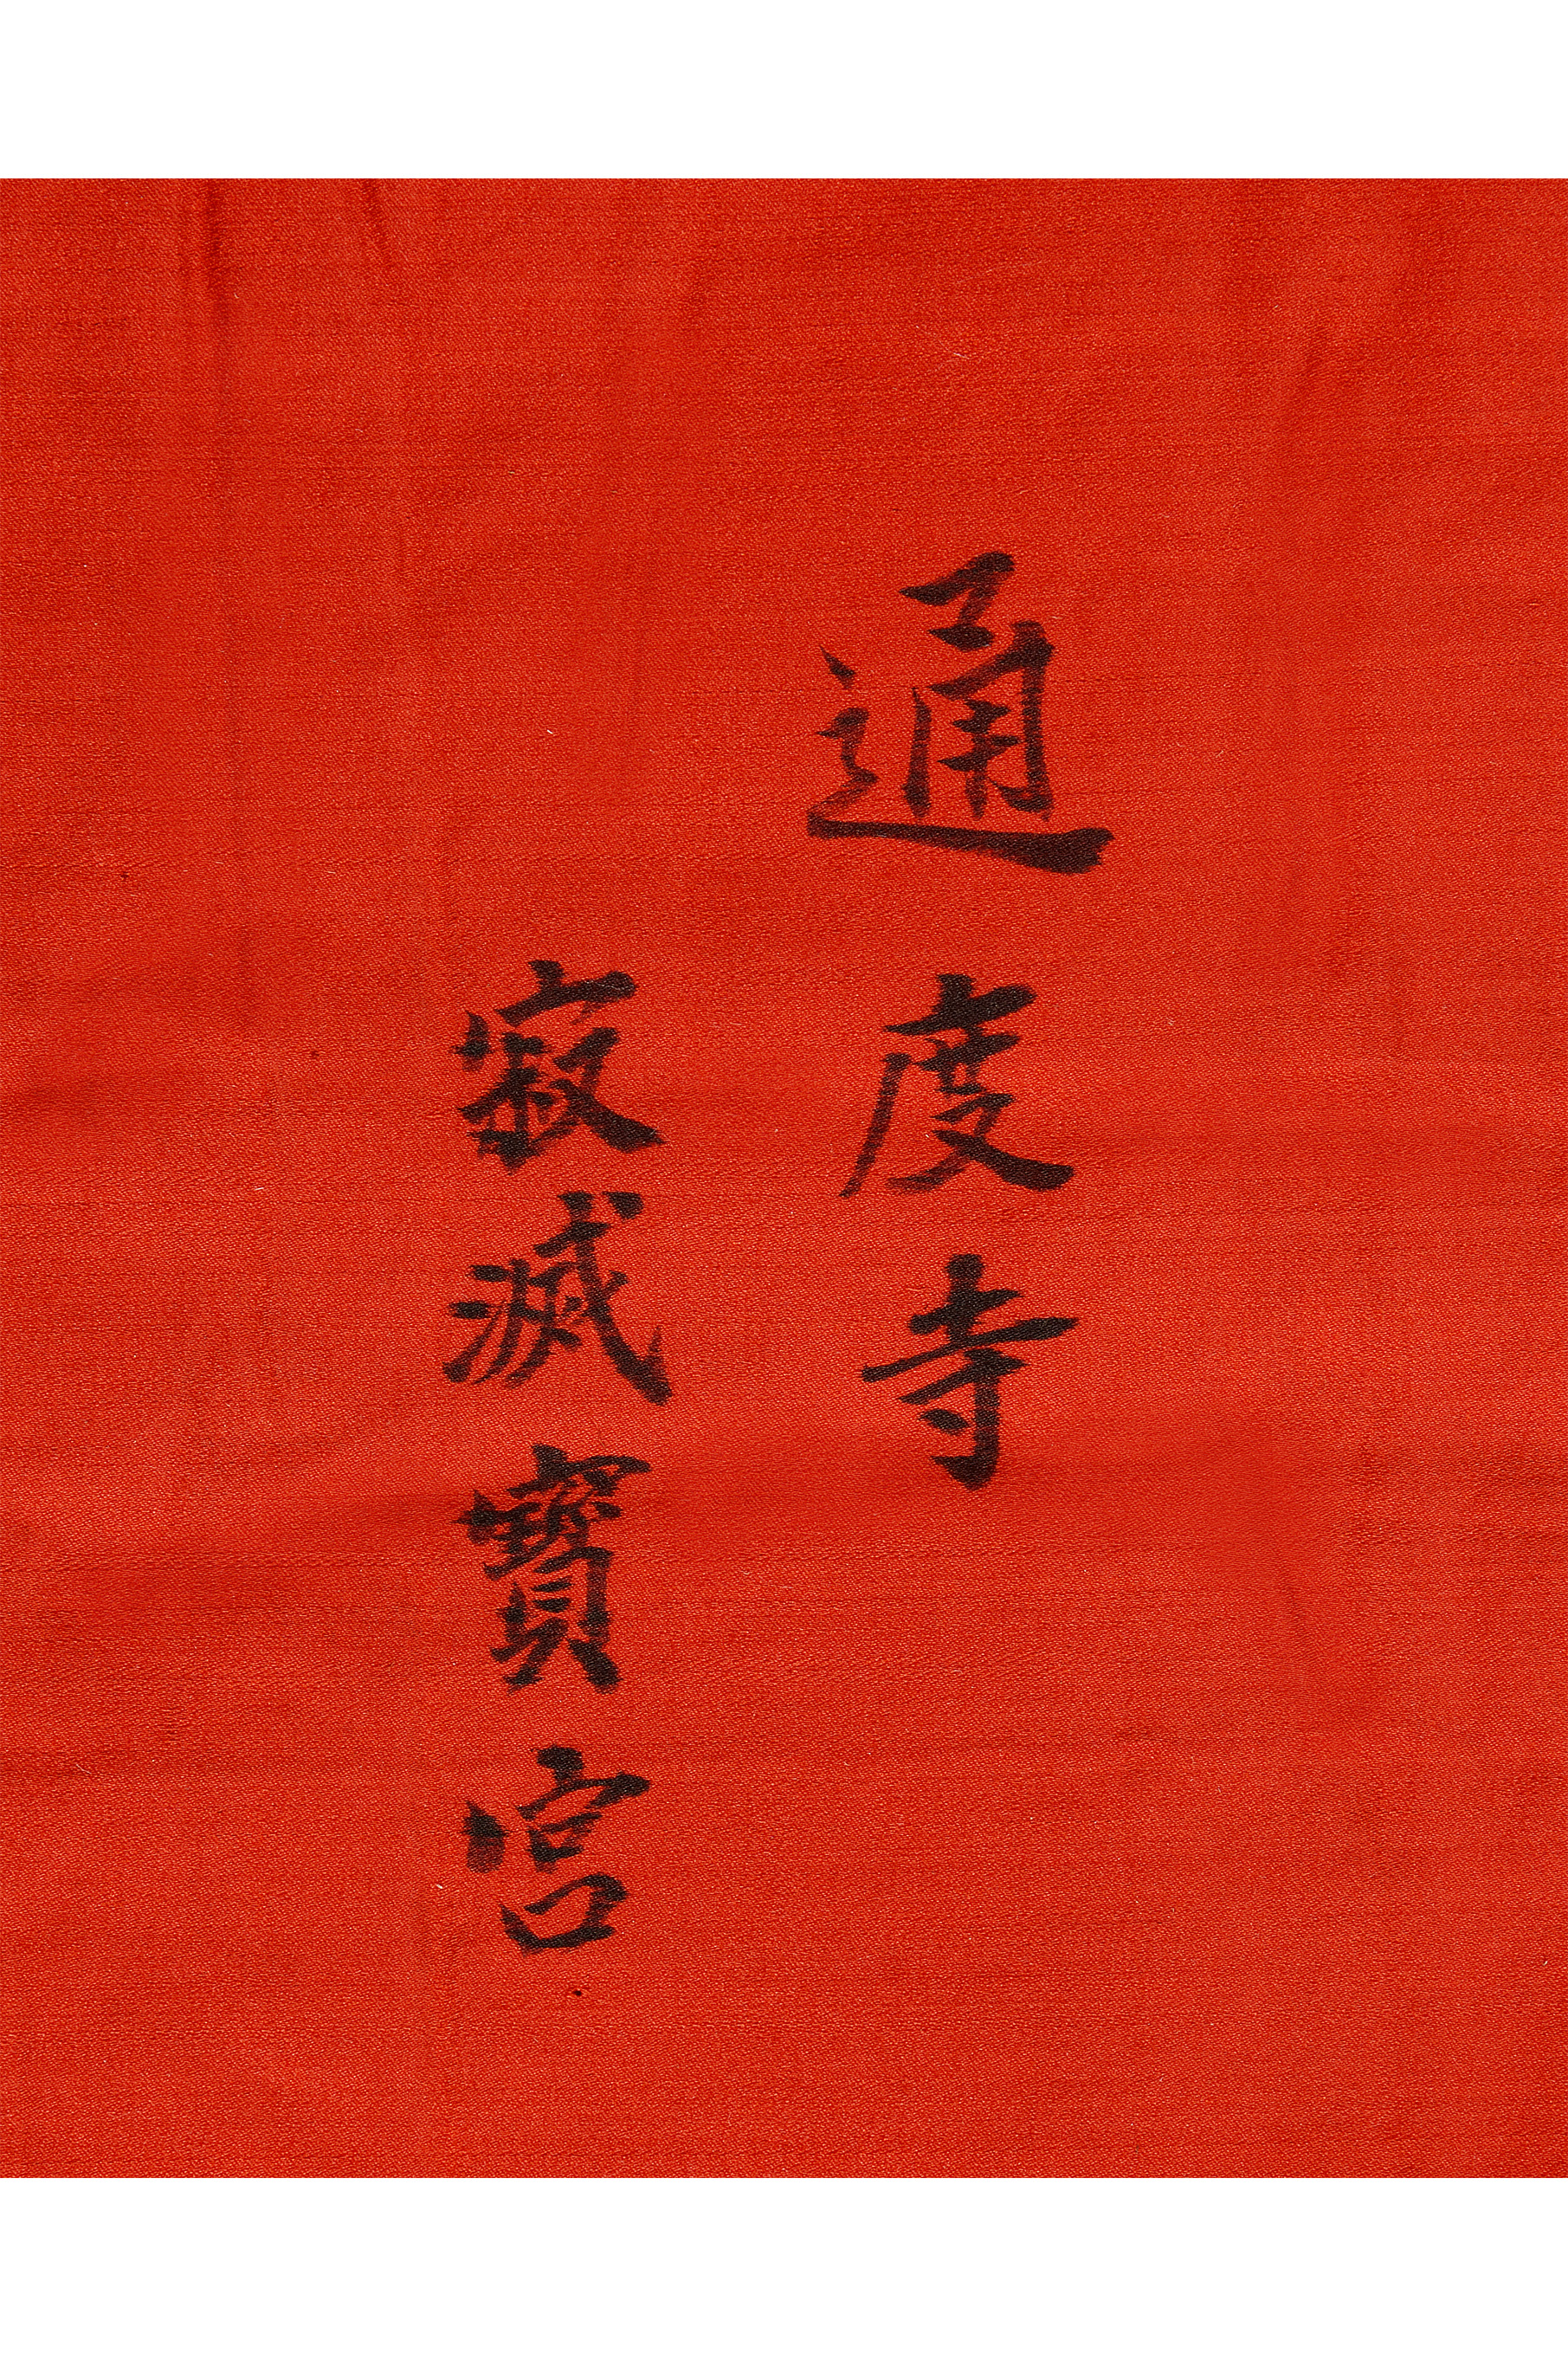 通度寺
寂滅寶宮